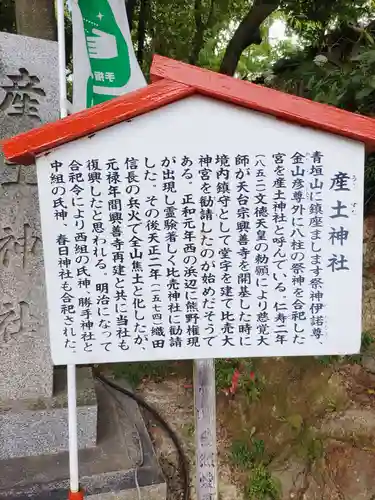 産土神社
青垣山に鎮座まします祭神伊諾尊
金山彦尊外に八柱の祭神を合祀した
宮を産土神社と呼んでいる。仁寿二年
(八五二)文徳天皇の勅願により慈覚大
師が天台宗興善寺を開基した時
境内鎮守として堂宇を建て比売大
神宮を勧請したのが始めだそうで
ある。正和元年西の浜辺に熊野権現
が出現し霊験著しく比売神社に勧請
した。その後天正二年(一五七四)織田
信長の兵火で全山焦土と化したが、
元禄年間興善寺再建と共に当社も
復興したと思われる。明治になって
合祀令により西組の氏神、勝手神社と
中組の氏神、春日神社も合祀された。
産土神社